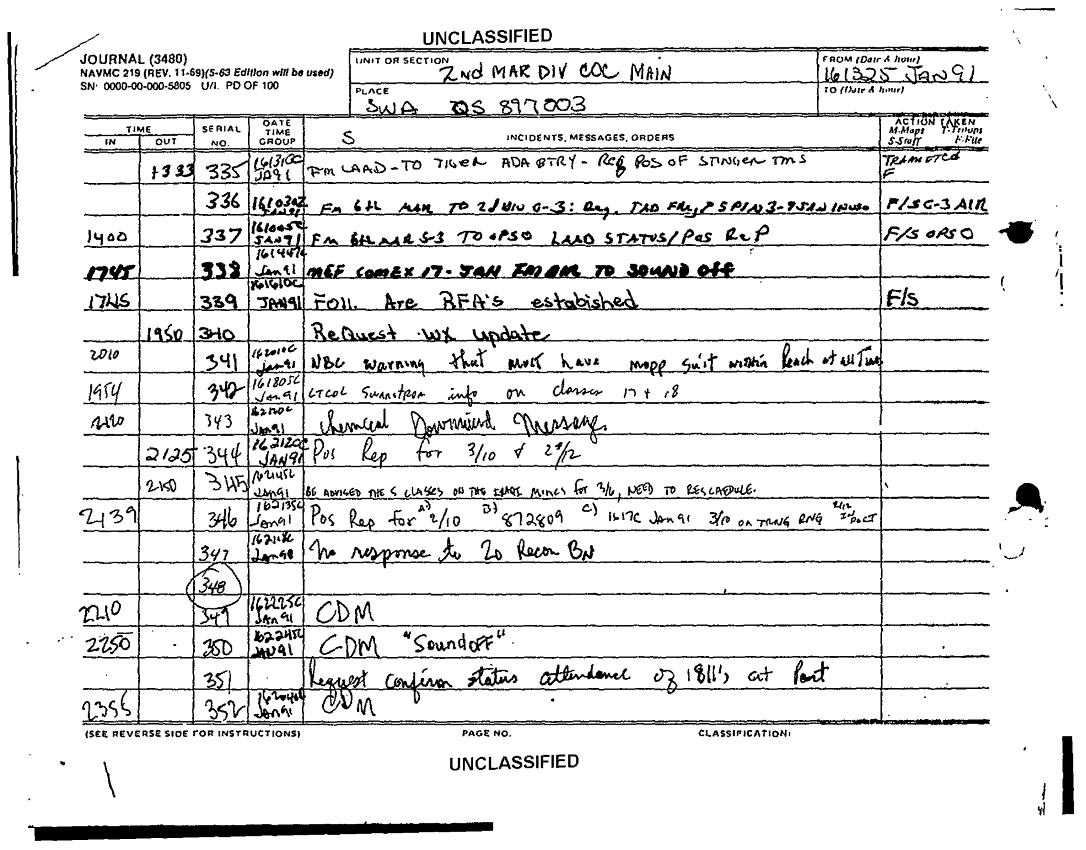 UNCLASSIFIED
JOURNAL (3480)
NAVMC 219 (REV. 11-69)(5-63 Edition will be used)
SN: 0000-00-000-5805 U/I. PD OF 100
UNIT OR SECTION
2nd MAR DIV COC MAIN
FROM (Date & hour)
161325 JAN 91
PLACE
SWA QS 897003
TO (Date & hour)
TIME
IN OUT
SERIAL NO.
DATE TIME GROUP
S INCIDENTS, MESSAGES, ORDERS
ACTION TAKEN
M-Maps T-Troops
S-Staff F-File
1333 335 FM LAAD - TO TIGER ADA BTRY - Req POS OF STINGER TMS
F
336 FM 6th MAR TO 2d DIV G-3: Reg. TAD F/SG-3 AIR
1400 337 JAN 91 FM 6th MAR S-3 TO OPSO LAAD STATUS/POS REP F/S OPSO
1745 338 Jan 91 MEF COMEX 17-JAN FM AIR TO SOUND OFF
1745 339 161610C JAN 91 Foll. Are RFA's estabished F/S
1950 340 ReQuest WX update
2010 341 162010C Jan 91 NBC warning that must have mopp suit within Reach at all Time
1954 342 161805C Jan 91 LTCOL Swanstrom info on classes 17 + 18
2120 343 162120C Jan 91 chemical Downwind Message
2125 344 162120C JAN 91 Pos Rep for 3/10 & 2/12
2150 345 162145C Jan 91 BE ADVISED THE 5 CLASSES ON THE IRAQI MINES for 3/6, NEED TO RESCHEDULE.
2139 346 162135C Jan 91 Pos Rep for A) 2/10 B) 872809 C) 1617C Jan 91 3/10 on TRNG RNG
347 No response to 2D Recon BN
348
2210 349 162225C JAN 91 CDM
2250 350 162245C JAN 91 CDM "Sound off"
351 Request confirm status attendance of 1811's at Port
2355 352 Jan 91 CDM
(SEE REVERSE SIDE FOR INSTRUCTIONS) PAGE NO. CLASSIFICATION:
UNCLASSIFIED